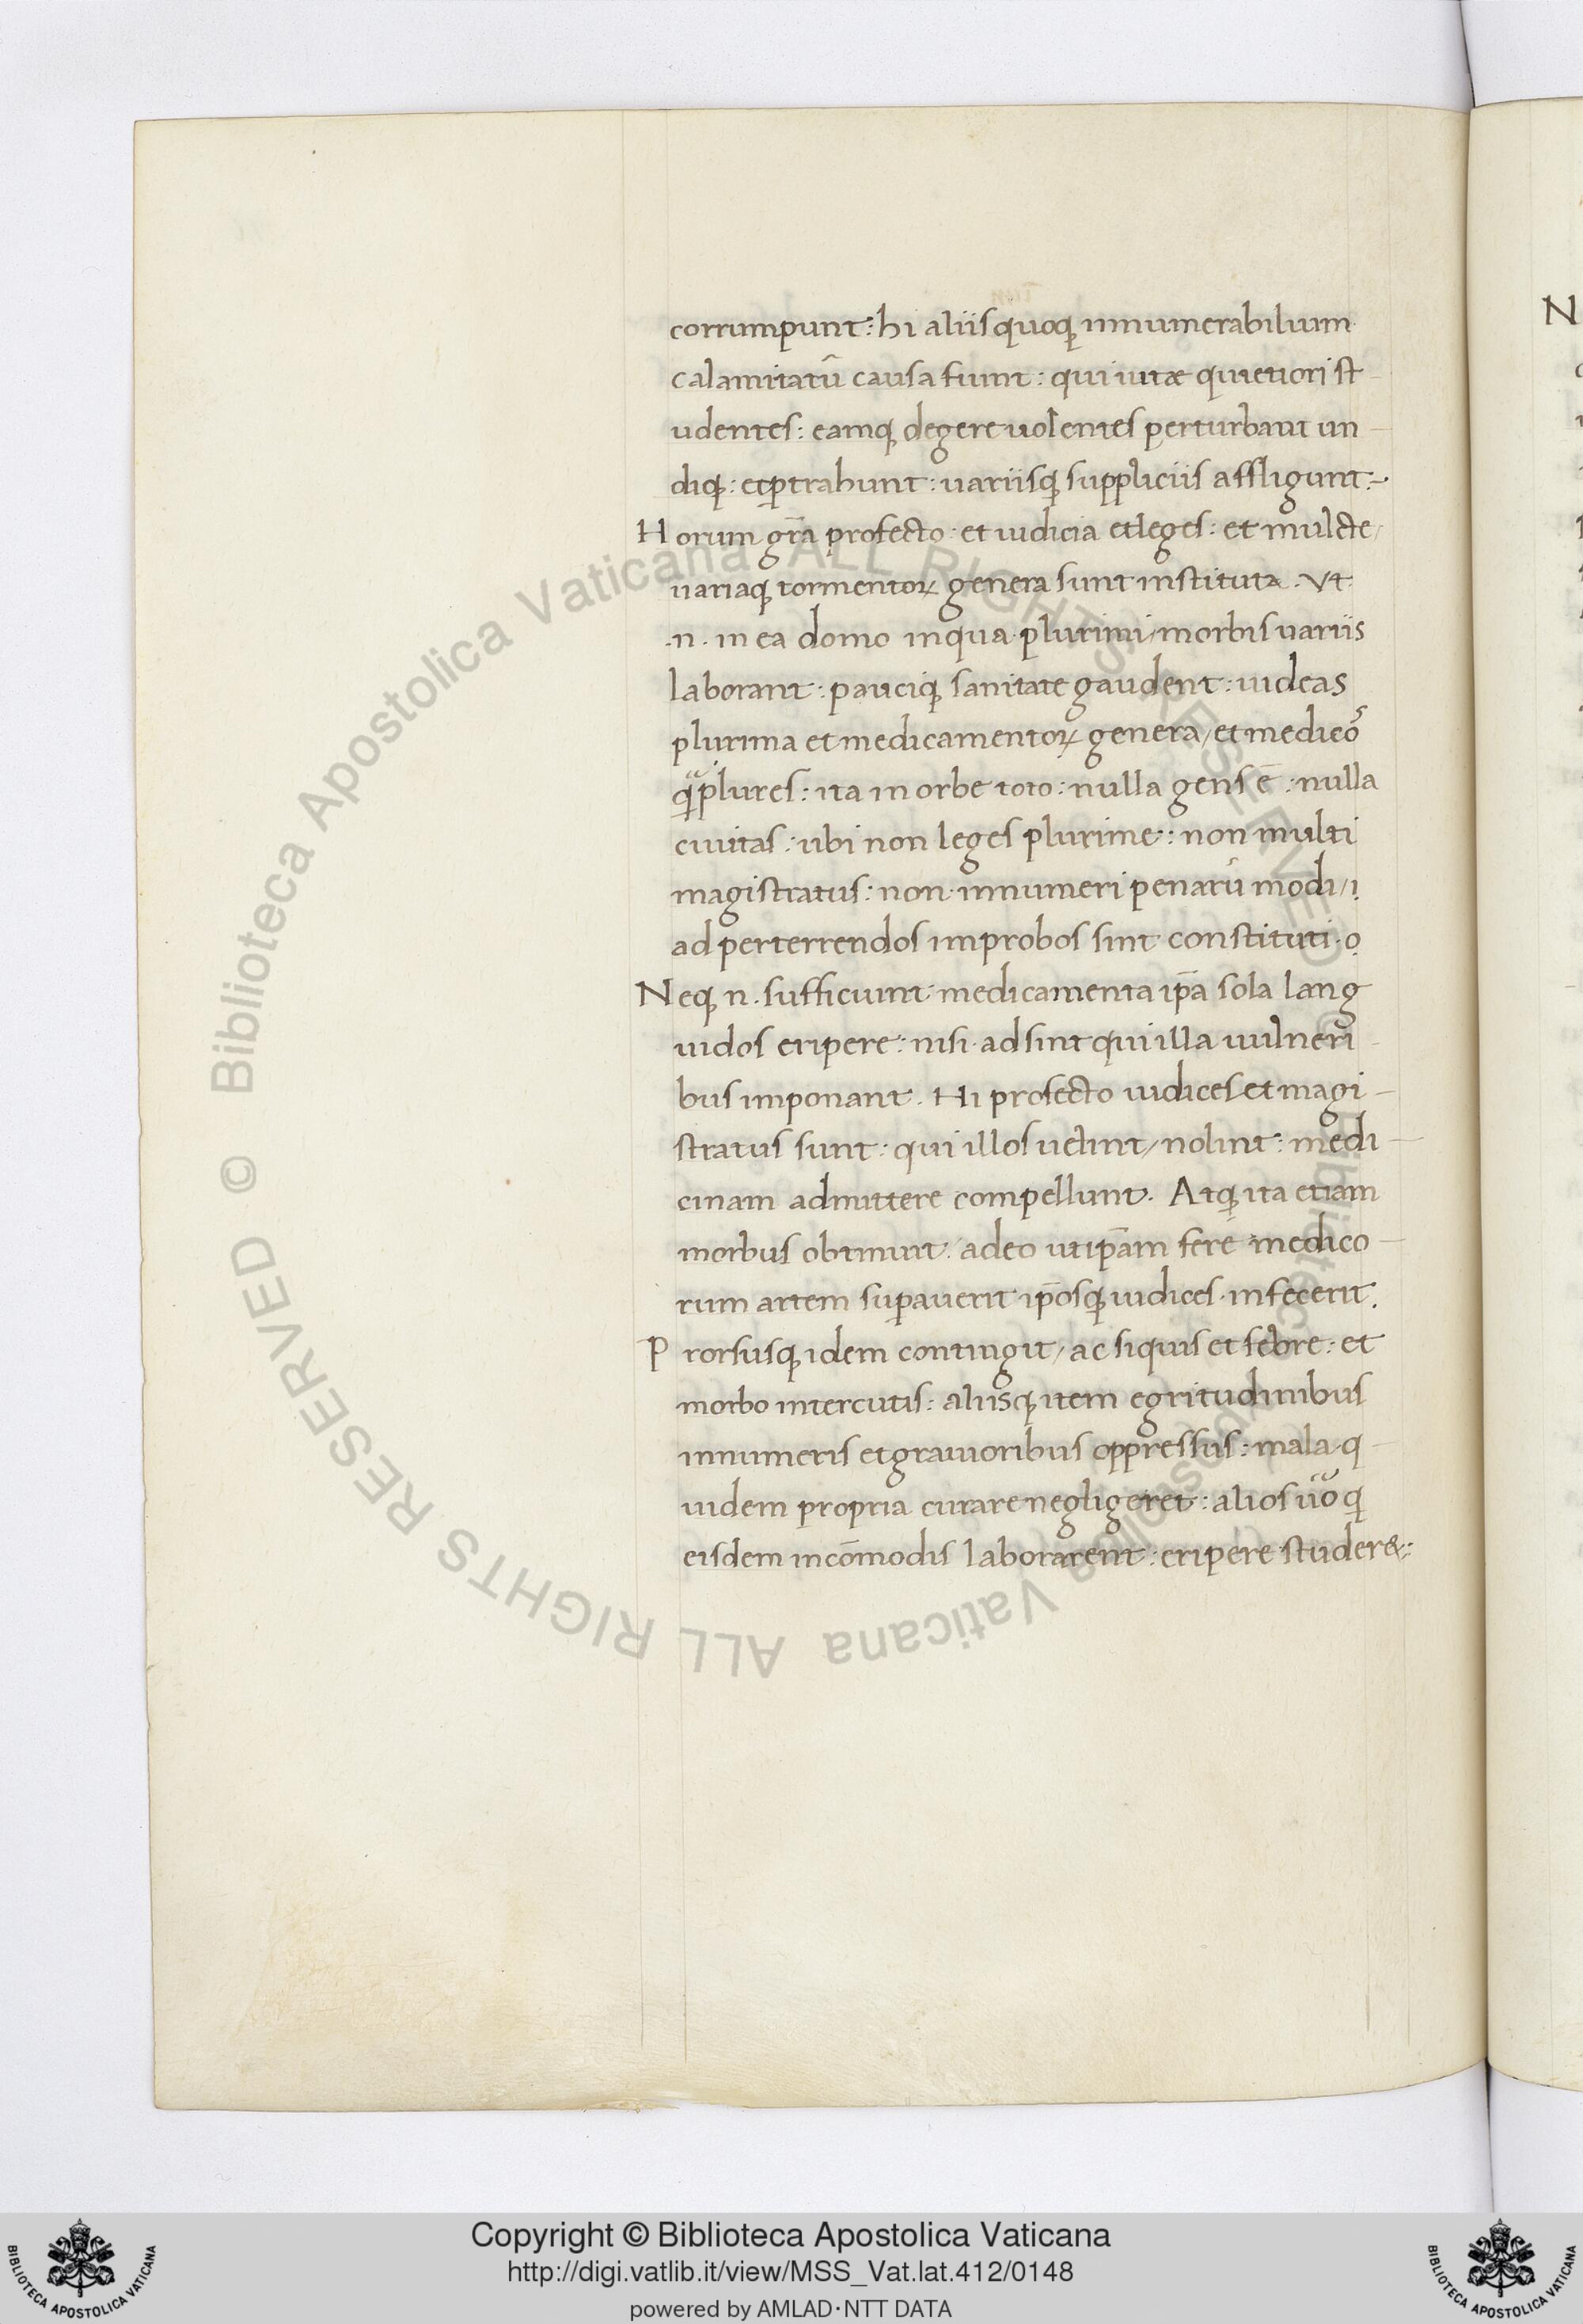 corrumpunt: hi aliis quoq; innumerabilium
calamitatū causa fiunt: qui uitæ quietiori st
udentes: eamq; degere uolentes perturbant un
diq;: et ꝑtrahunt: uariisq; suppliciis affligunt:
Horum gr̄a profecto et iudicia et leges: et mulcte
uariaq; tormentoꝝ genera sunt instituta. Vt
.n. in ea domo in qua plurimi/morbis uariis
laborant: pauciq; sanitate gaudent: uideas
plurima et medicamentoꝝ genera/et medicos
q̃ plures: ita in orbe toto: nulla gens ē: nulla
ciuitas: ubi non leges plurime: non multi
magistratus: non innumeri penarū modi/
ad perterrendos improbos sint constituti.
Neq; n. sufficiunt medicamenta ip̄a sola lang
uidos eripere: nisi adsint qui illa uulneri
bus imponant. Hi profecto iudices et magi
stratus sunt: qui illos uelint/nolint: medi
cinam admittere compellunt. Atq; ita etiam
morbus obtinuit: adeo ut ip̄am fere medico
rum artem suꝑauerit ip̄osq; iudices infecerit.
Prorsusq; idem contingit/ac siquis et febre: et
morbo intercutis: aliisq; item egritudinibus
innumeris et grauioribus oppressus: mala q
uidem propria curare negligeret: alios uo qi
eisdem incōmodis laborarent: eripere studer&:
N
Biblioteca Apostolica Vaticana ALL RIGHTS RESERVED ©
Biblioteca Apostolica Vaticana ALL RIGHTS RESERVED ©
Copyright © Biblioteca Apostolica Vaticana
http://digi.vatlib.it/view/MSS_Vat.lat.412/0148
powered by AMLAD·NTT DATA
BIBLIOTECA APOSTOLICA VATICANA
BIBLIOTECA APOSTOLICA VATICANA